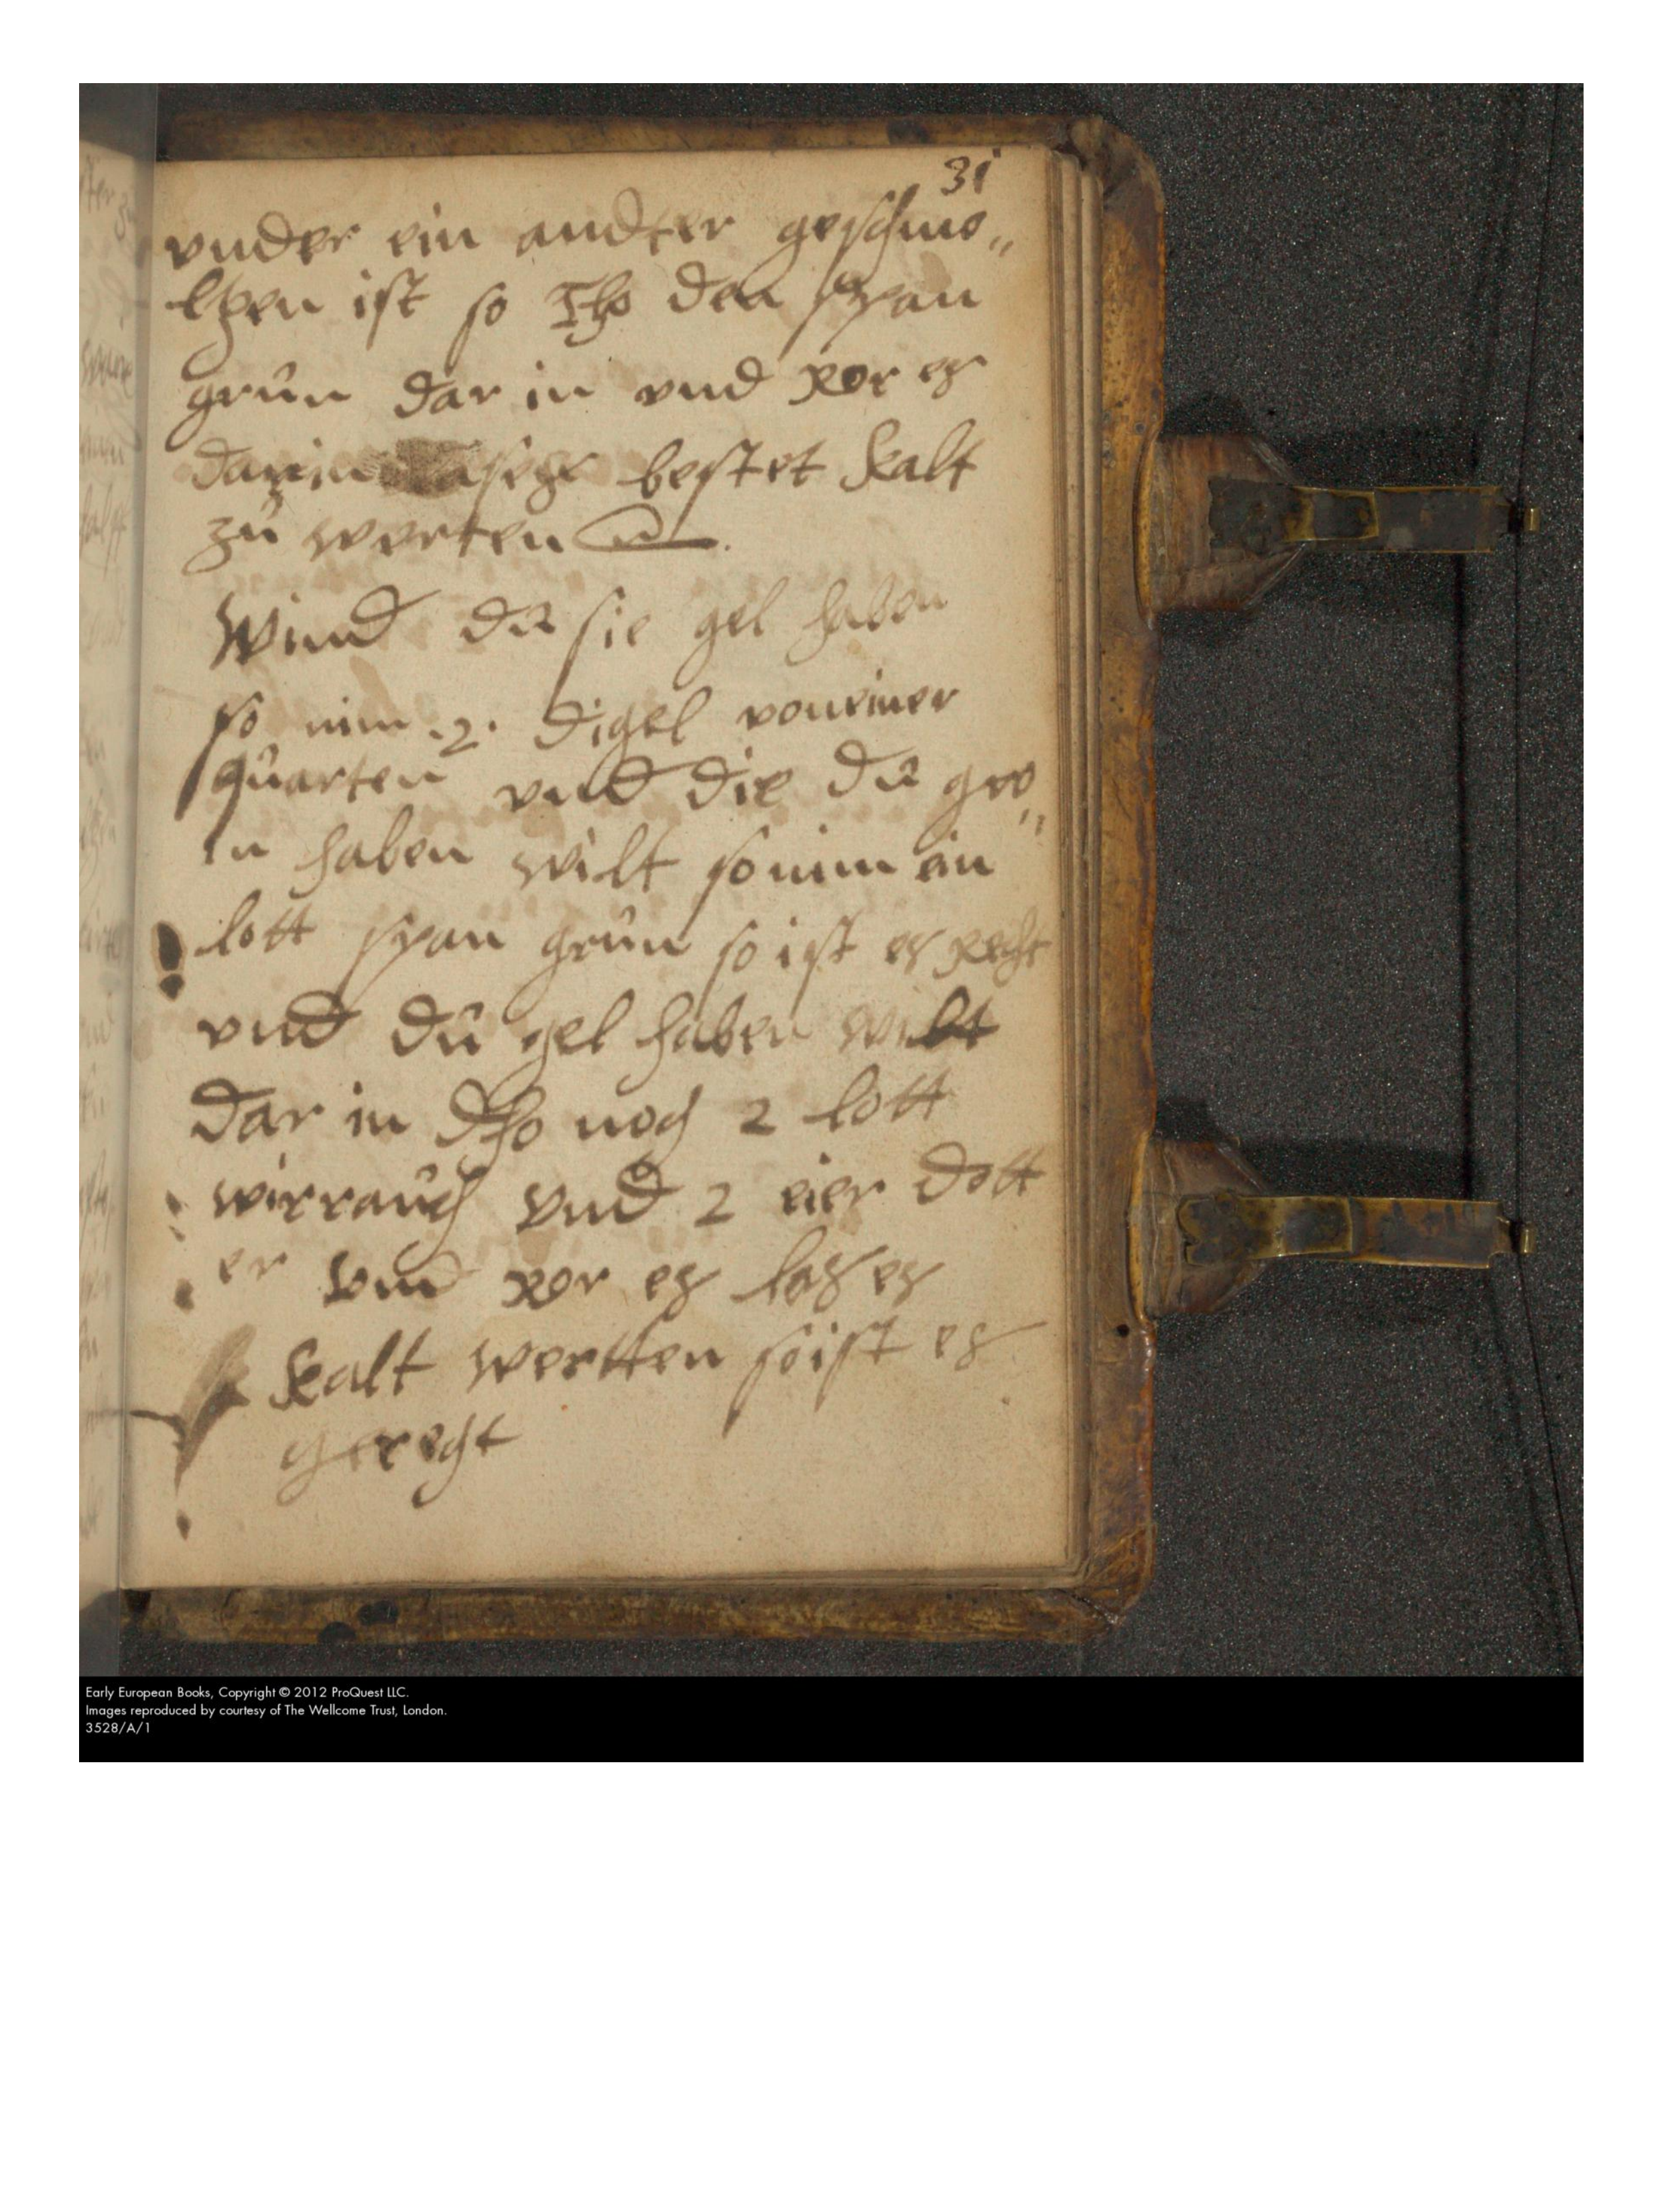 31
vnder ein andter geschmo„
ltzen ist so Tho den span
grün dar in vnd ror es
darin bestet kalt
zü werten
Wind dü sie gel haben
so nim .2. digel von einer
quarten vnd die dü gro„
in haben wilt so nim ein
lott span grün so ist es recht
vnd dü gel haben wilt
dar in dho noch 2 lott
wirrauch vnd 2 eier dott
er vnd ror es las es
kalt wertten so ist es
gerecht
Early European Books, Copyright © 2012 ProQuest LLC.
Images reproduced by courtesy of The Wellcome Trust, London.
3528/A/1